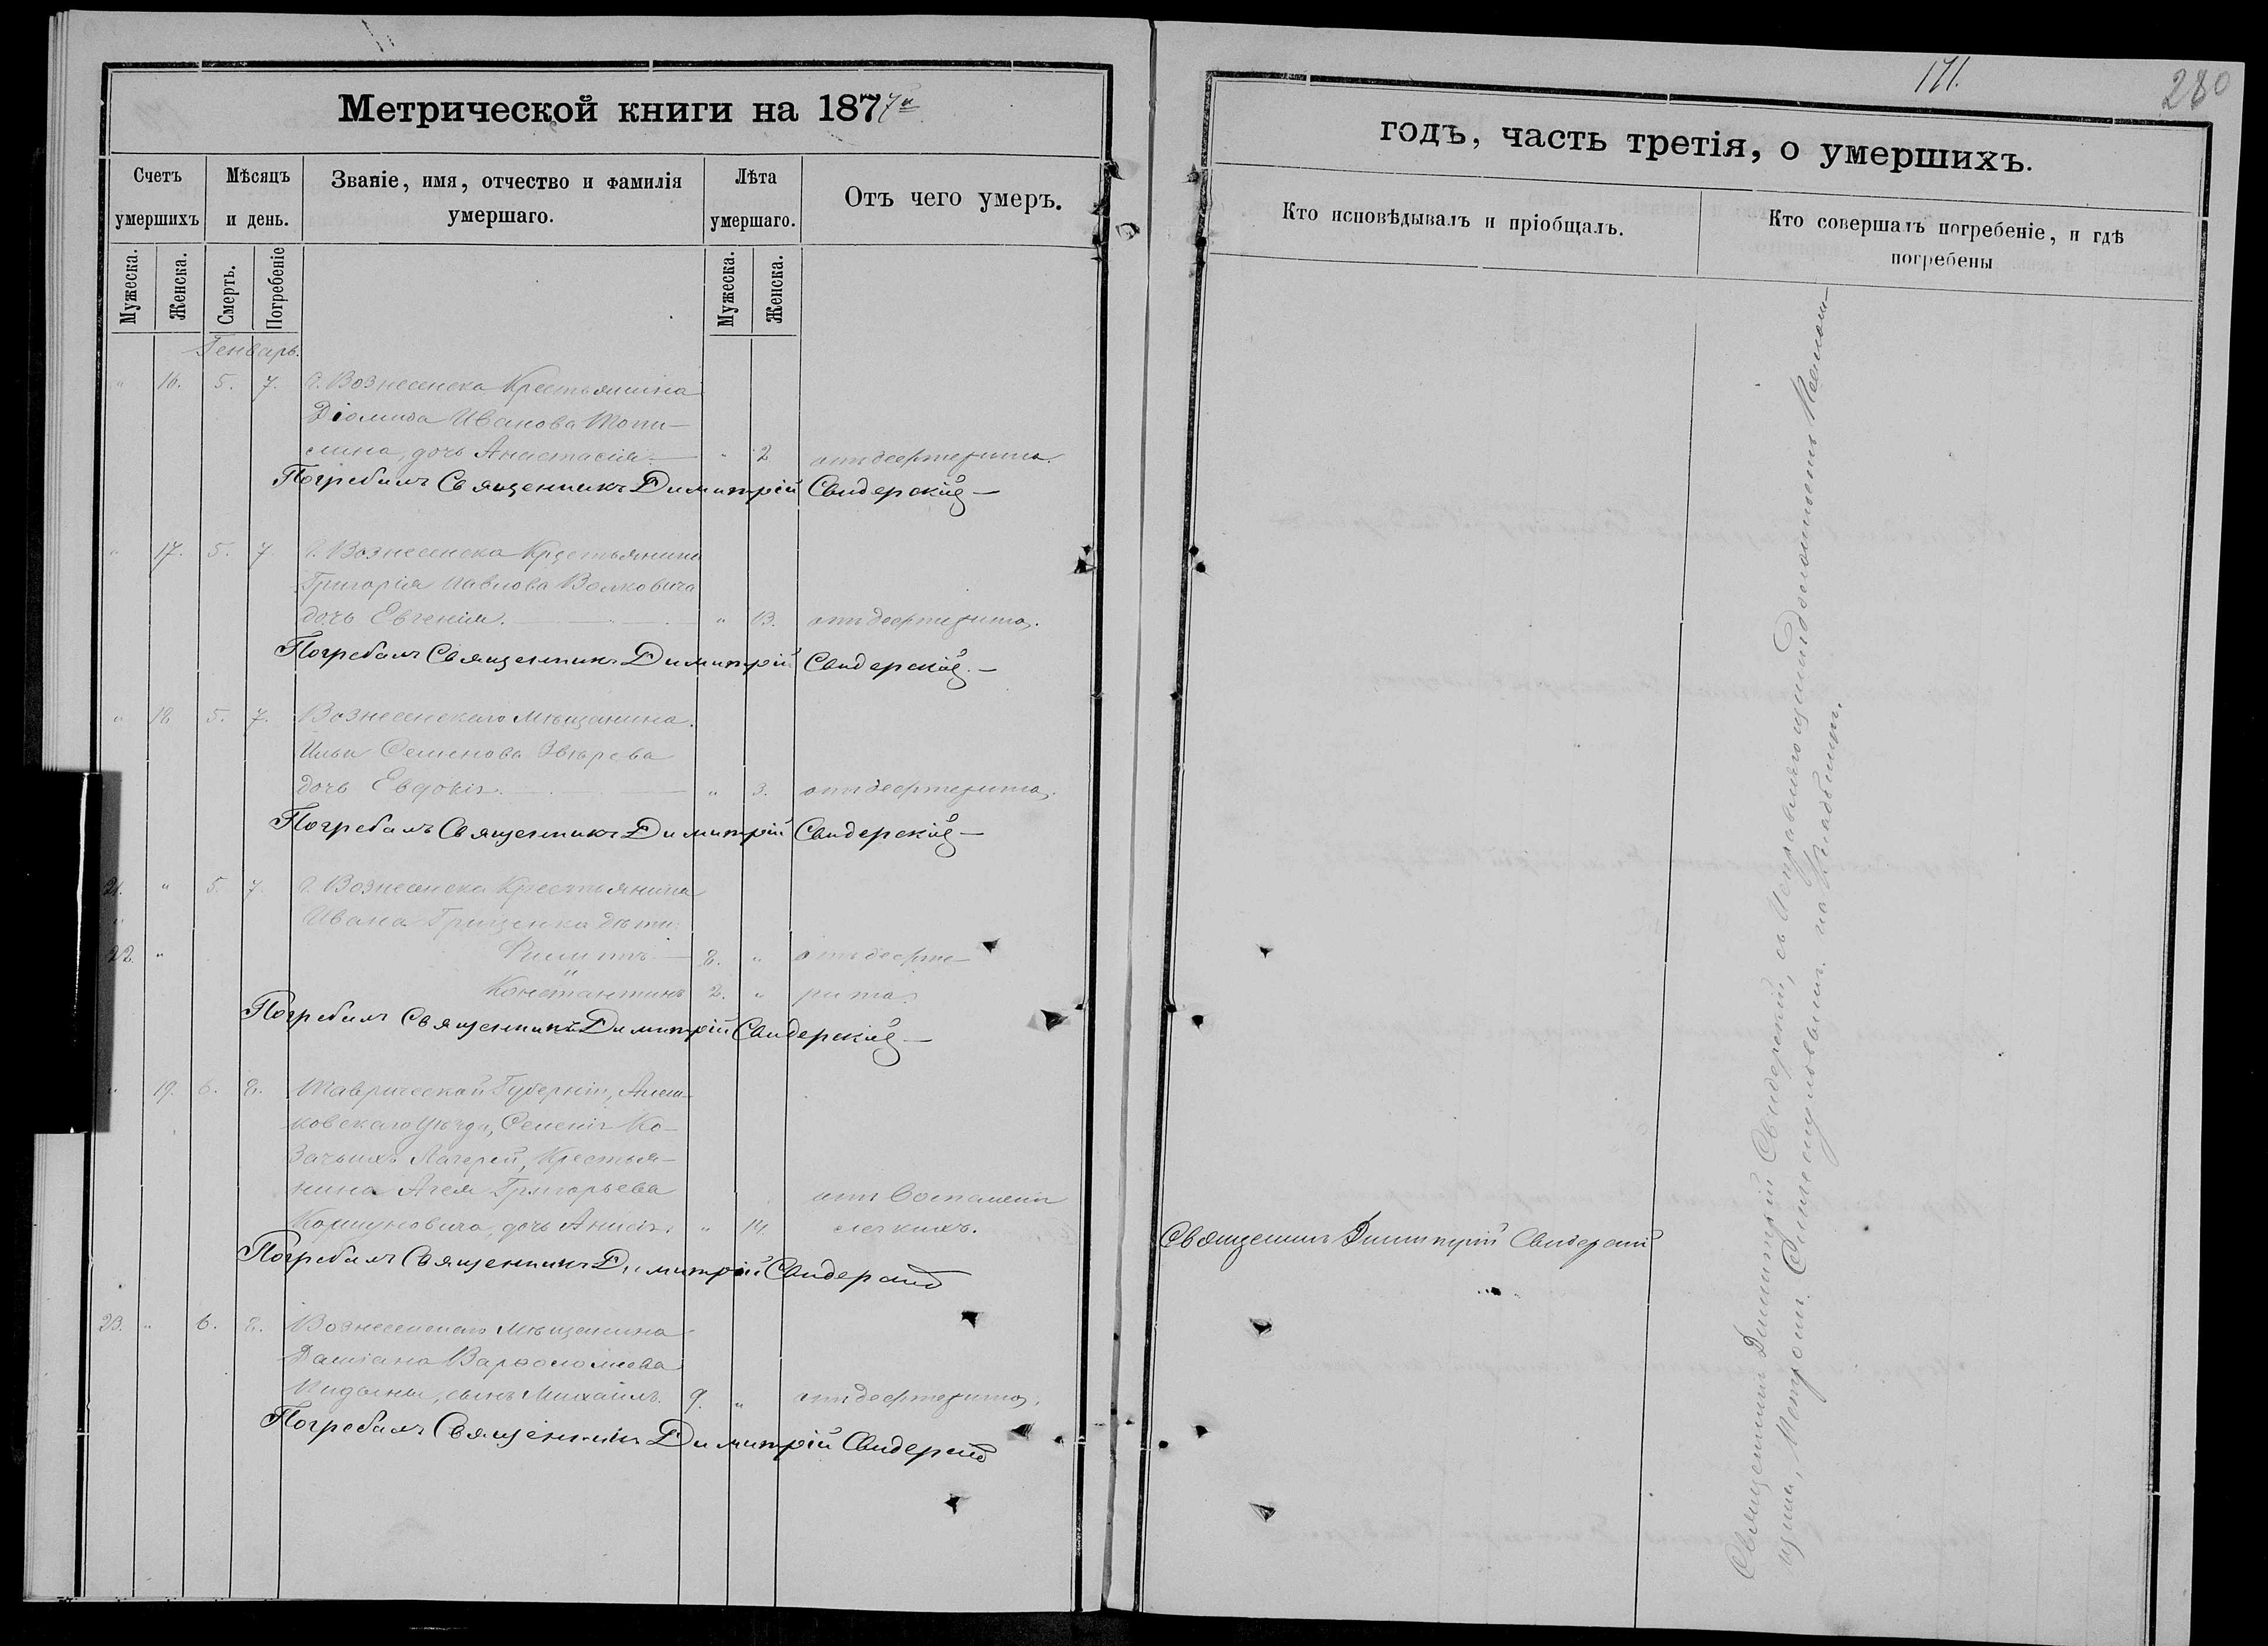 Метрической книги на 1877й
Счетъ умершихъ
Мѣсяцъ и день.
Званіе, имя, отчество и фамилія умершаго.
Лѣта умершаго.
Отъ чего умеръ.
Мужеска.
Женска.
Смерть.
Погребеніе
Мужеска.
Женска.
Генварь.
" 16. 5. 7. Г. Вознесенска Крестьянина
Діомида Иванова Топи-
лина, дочь Анастасія — " 2 отъ дефтерита.
Погребалъ Священникъ Димитрій Свидерскій —
" 17. 5. 7. Г. Вознесенска Крестьянина
Григорія Павлова Волковича
дочь Евгенія. — " 13. отъ дефтерита.
Погребалъ Священникъ Димитрій Свидерскій. —
" 18 5. 7. Вознесенскаго Мѣщанина
Ильи Семенова Звѣрева
дочь Евдокія. — " 3. отъ дефтерита.
Погребалъ Священникъ Димитрій Свидерскій —
21. " 5. 7. Г. Вознесенска Крестьянина
" Ивана Грищенка дѣти:
22. " Филиппъ — 8. " отъ дефте-
Константинъ 2. " рита.
Погребалъ Священникъ Димитрій Свидерскій —
" 19. 6. 8. Таврической Губерніи, Алеш-
ковскаго Уѣзда, Селенія Ко-
зачьихъ Лагерей, Крестья-
нина Григорьева отъ воспаленія
дочь Анисія. " 14. легкихъ.
Погребалъ Священникъ Димитрій Свидерскій
23. " 6. 8. Вознесенскаго Мѣщанина
Даміана Варѳоломеева
сынъ Михаилъ. 9. " отъ дефтерита.
Погребалъ Священникъ Димитрій Свидерскій
171.
280
годъ, часть третія, о умершихъ.
Кто исповѣдывалъ и пріобщалъ.
Кто совершалъ погребеніе, и гдѣ погребены
Священникъ Димитрій Свидерскій
Священникъ Димитрій Свидерскій, съ Исправляющимъ должность
на Кладбищѣ.